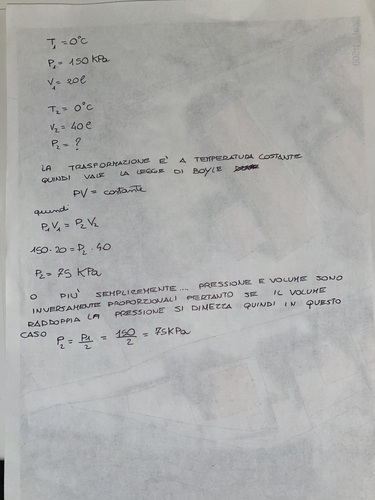 T₁ = 0°C
P₁ = 150 KPa
V₁ = 20 ℓ
T₂ = 0°C
V₂ = 40 ℓ
P₂ = ?
LA TRASFORMAZIONE E' A TEMPERATURA COSTANTE
QUINDI VALE LA LEGGE DI BOYLE
PV = costante
quindi
P₁V₁ = P₂V₂
150·20 = P₂·40
P₂ = 75 KPa
O PIU' SEMPLICEMENTE... PRESSIONE E VOLUME SONO
INVERSAMENTE PROPORZIONALI PERTANTO SE IL VOLUME
RADDOPPIA LA PRESSIONE SI DIMEZZA QUINDI IN QUESTO
CASO P₂ = P₁/2 = 150/2 = 75KPa